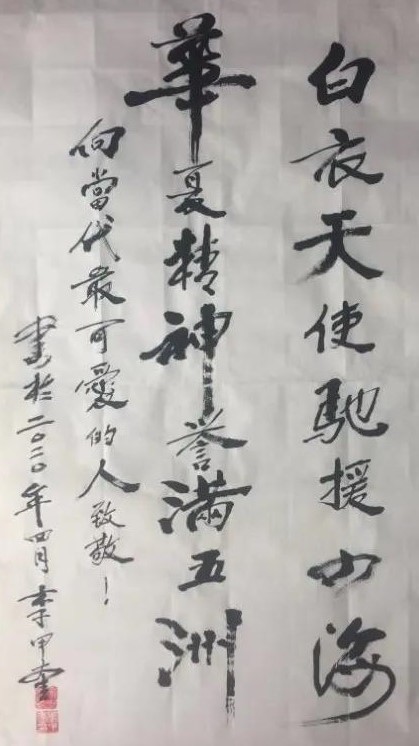 白衣天使馳援四海
華夏精神誉滿五洲
向當代最可愛的人致敬！
書於二〇二〇年四月李甲